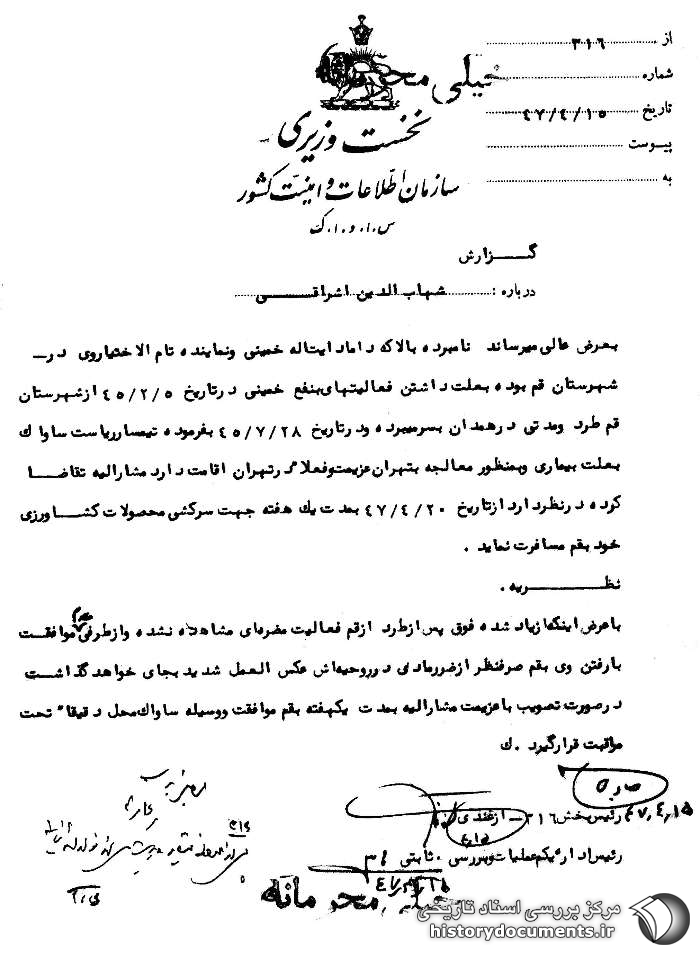 از ۳۱۶
شماره
تاریخ ۴۷/۴/۱۵
پیوست
به
خیلی محرمانه
نخست وزیری
سازمان اطلاعات و امنیت کشور
س.ا.و.ا.ک
گزارش
درباره : شهاب الدین اشراقی
بعرض عالی میرساند نامبرده بالا که داماد ایتاله خمینی ونماینده تام الاختیاروی در
شهرستان قم بوده بعلت داشتن فعالیتهای بنفع خمینی درتاریخ ۴۵/۲/۵ ازشهرستان
قم طرد ومدتی درهمدان بسرمیبرده ودرتاریخ ۴۵/۷/۲۸ بفرموده تیمسارریاست ساواك
بعلت بیماری وبمنظور معالجه بتهران عزیمت وفعلا درتهران اقامت دارد مشارالیه تقاضا
کرده درنظردارد ازتاریخ ۴۷/۴/۲۰ بمدت یك هفته جهت سرکشی محصولات کشاورزی
خود بقم مسافرت نماید .
نظریه .
باعرض اینکه ازیاد شده فوق پس ازطرد ازقم فعالیت مضره‌ای مشاهده نشده وازطرفی عدم موافقت
بارفتن وی بقم صرفنظر ازضررمادی درروحیه‌اش عکس العمل شدید بجای خواهد گذاشت
درصورت تصویب باعزیمت مشارالیه بمدت یکهفته بقم موافقت ووسیله ساواك محل دقیقا" تحت
مراقبت قرارگیرد . ك
رئیس بخش ۳۱۶ - ازغندی
۴۷،۴،۱۵
رئیس اداره یکم عملیات وبررسی . ثابتی
خیلی محرمانه
مرکز بررسی اسناد تاریخی
historydocuments.ir